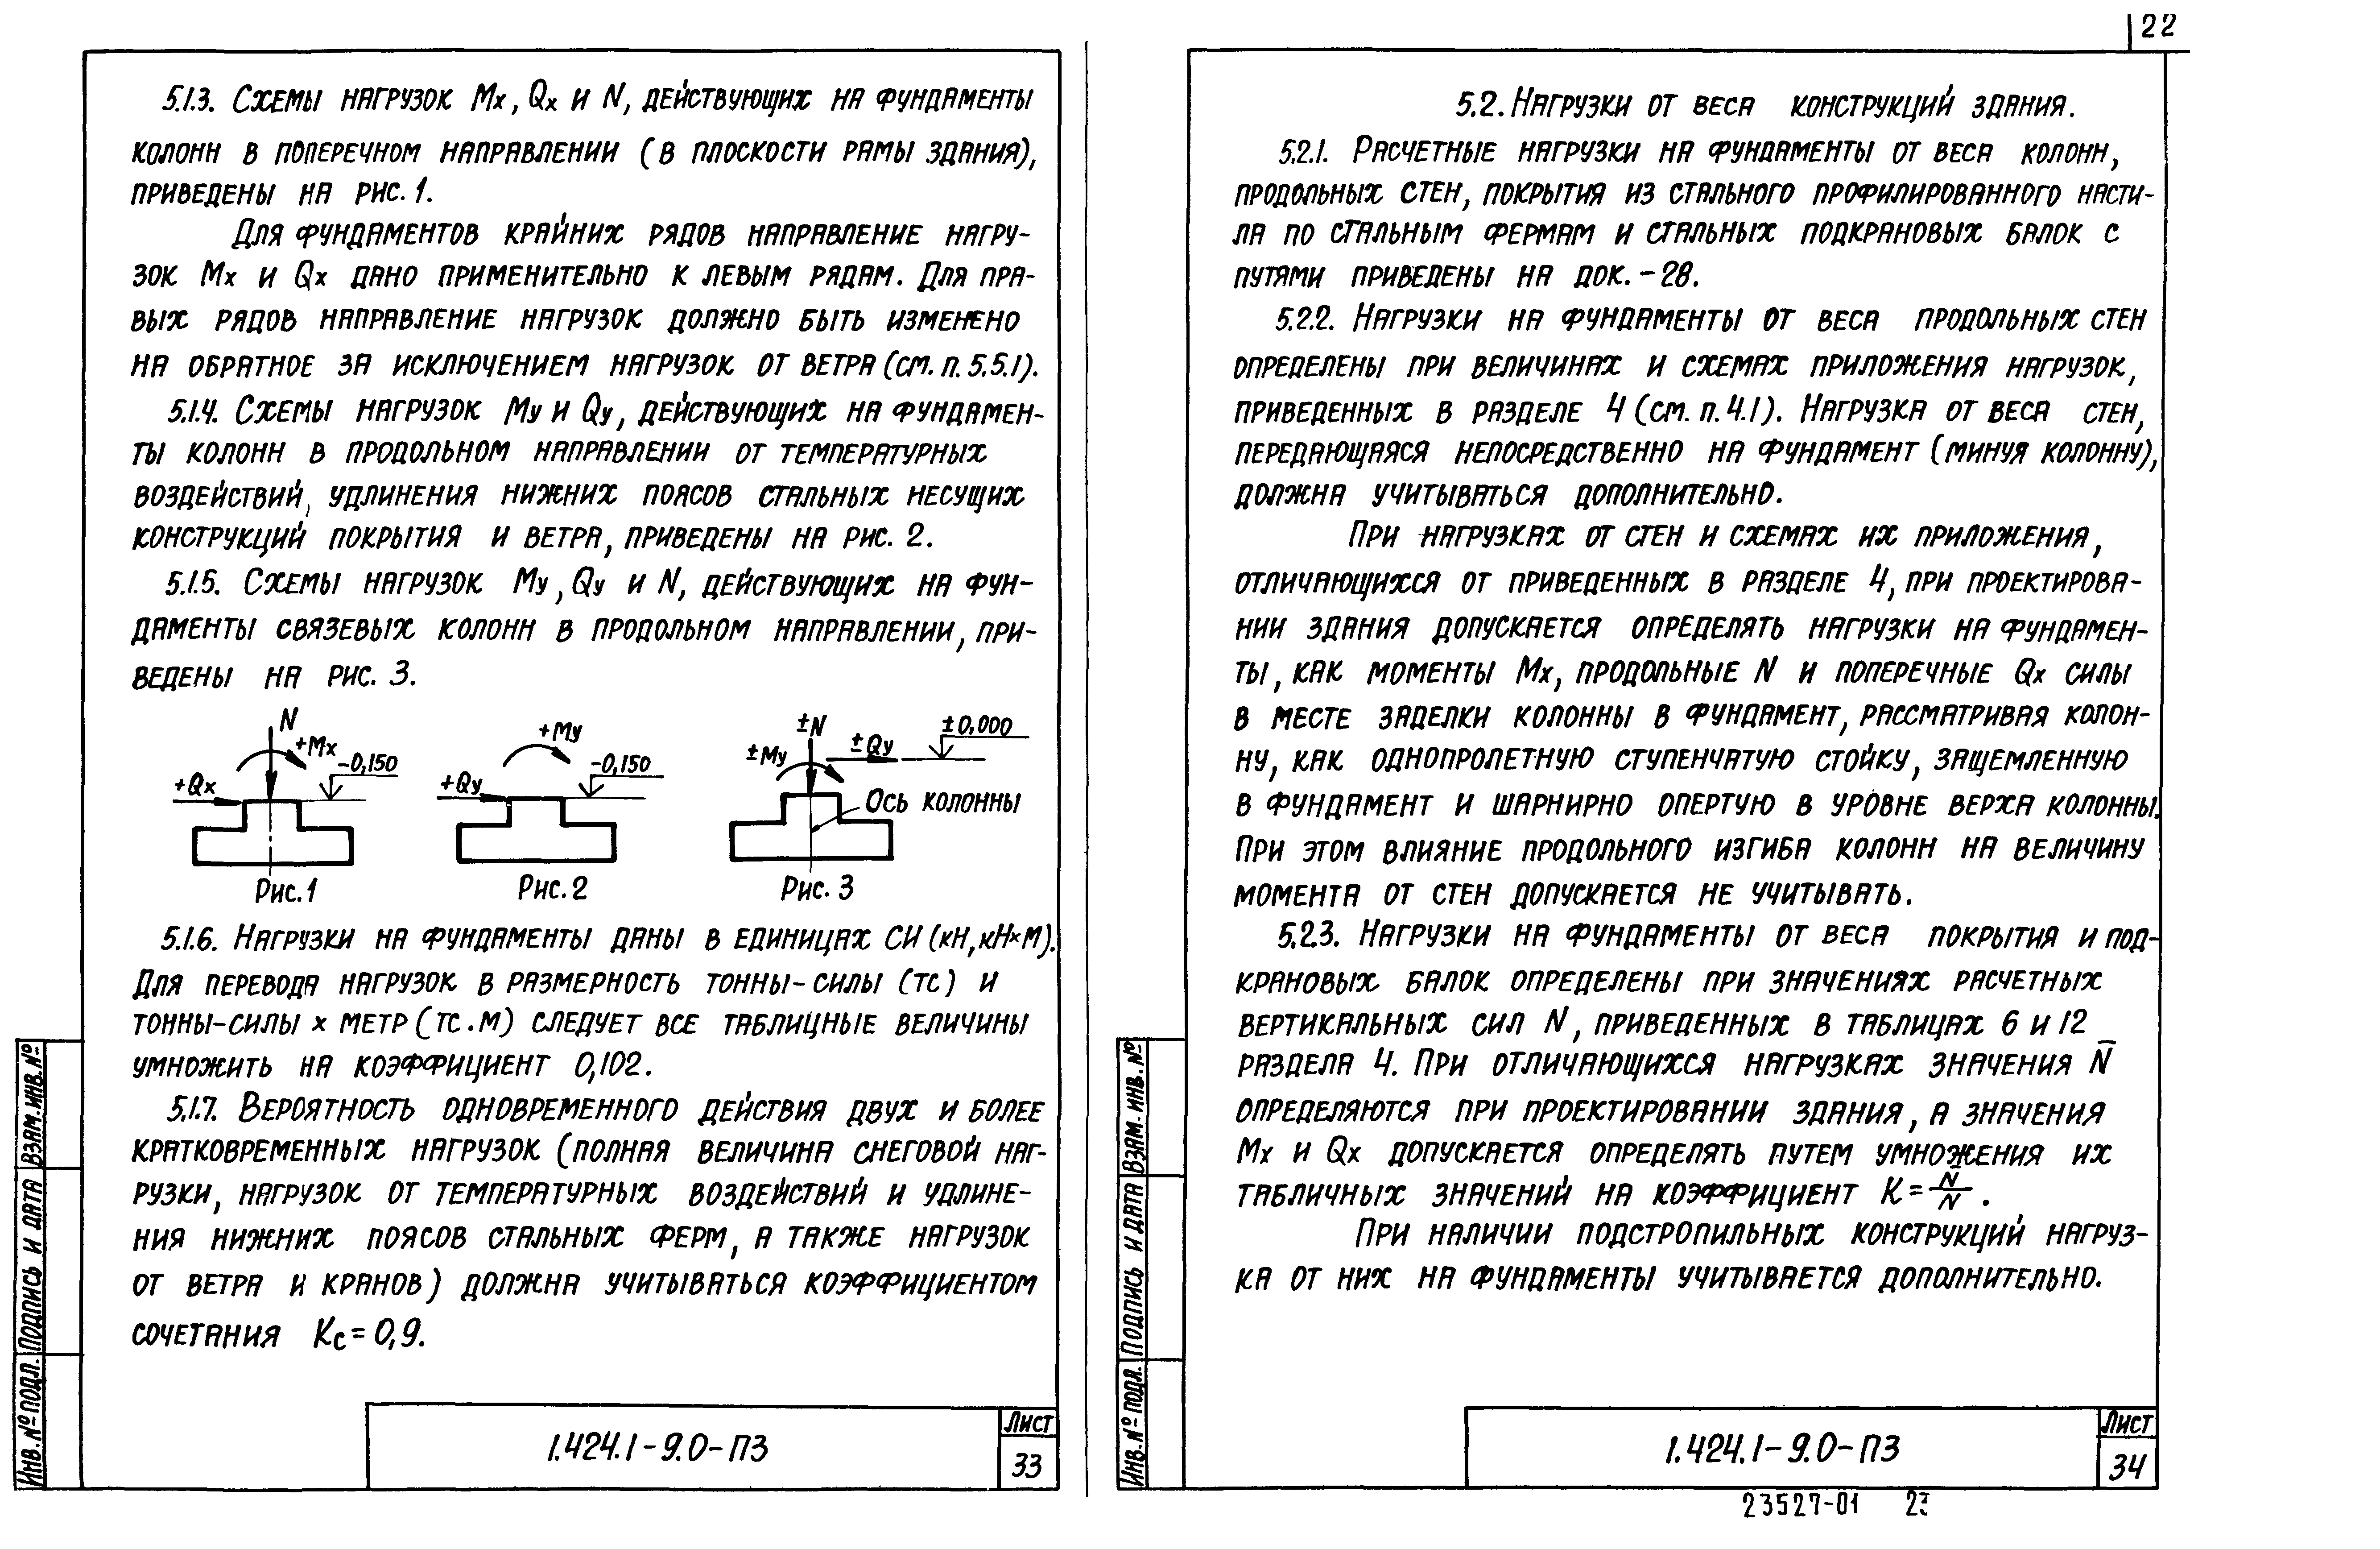 22
5.1.3. Схемы нагрузок Mx, Qx и N, действующих на фундаменты
колонн в поперечном направлении (в плоскости рамы здания),
приведены на рис. 1.
Для фундаментов крайних рядов направление нагру-
зок Mx и Qx дано применительно к левым рядам. Для пра-
вых рядов направление нагрузок должно быть изменено
на обратное за исключением нагрузок от ветра (см. п. 5.5.1).
5.1.4. Схемы нагрузок My и Qy, действующих на фундамен-
ты колонн в продольном направлении от температурных
воздействий, удлинения нижних поясов стальных несущих
конструкций покрытия и ветра, приведены на рис. 2.
5.1.5. Схемы нагрузок My, Qy и N, действующих на фун-
даменты связевых колонн в продольном направлении, при-
ведены на рис. 3.
N
+Mx
-0,150
+Qx
Рис. 1
+My
-0,150
+Qy
Рис. 2
±N
±My
±Qy
±0,000
Ось колонны
Рис. 3
5.1.6. Нагрузки на фундаменты даны в единицах СИ (кН, кН×м).
Для перевода нагрузок в размерность тонны-силы (тс) и
тонны-силы × метр (тс.м) следует все таблицные величины
умножить на коэффициент 0,102.
5.1.7. Вероятность одновременного действия двух и более
кратковременных нагрузок (полная величина снеговой наг-
рузки, нагрузок от температурных воздействий и удлине-
ния нижних поясов стальных ферм, а также нагрузок
от ветра и кранов) должна учитываться коэффициентом
сочетания Kc = 0,9.
Инв. № подл. Подпись и дата Взам. инв. №
1.424.1-9.0-ПЗ
Лист
33
5.2. Нагрузки от веса конструкций здания.
5.2.1. Расчетные нагрузки на фундаменты от веса колонн,
продольных стен, покрытия из стального профилированного насти-
ла по стальным фермам и стальных подкрановых балок с
путями приведены на док. -28.
5.2.2. Нагрузки на фундаменты от веса продольных стен
определены при величинах и схемах приложения нагрузок,
приведенных в разделе 4 (см. п. 4.1). Нагрузка от веса стен,
передающаяся непосредственно на фундамент (минуя колонну),
должна учитываться дополнительно.
При нагрузках от стен и схемах их приложения,
отличающихся от приведенных в разделе 4, при проектирова-
нии здания допускается определять нагрузки на фундамен-
ты, как моменты Mx, продольные N и поперечные Qx силы
в месте заделки колонны в фундамент, рассматривая колон-
ну, как однопролетную ступенчатую стойку, защемленную
в фундамент и шарнирно опертую в уровне верха колонны.
При этом влияние продольного изгиба колонн на величину
момента от стен допускается не учитывать.
5.2.3. Нагрузки на фундаменты от веса покрытия и под-
крановых балок определены при значениях расчетных
вертикальных сил N, приведенных в таблицах 6 и 12
раздела 4. При отличающихся нагрузках значения N̄
определяются при проектировании здания, а значения
Mx и Qx допускается определять путем умножения их
табличных значений на коэффициент K = N̄/N.
При наличии подстропильных конструкций нагруз-
ка от них на фундаменты учитывается дополнительно.
Инв. № подл. Подпись и дата Взам. инв. №
1.424.1-9.0-ПЗ
Лист
34
23527-01 23